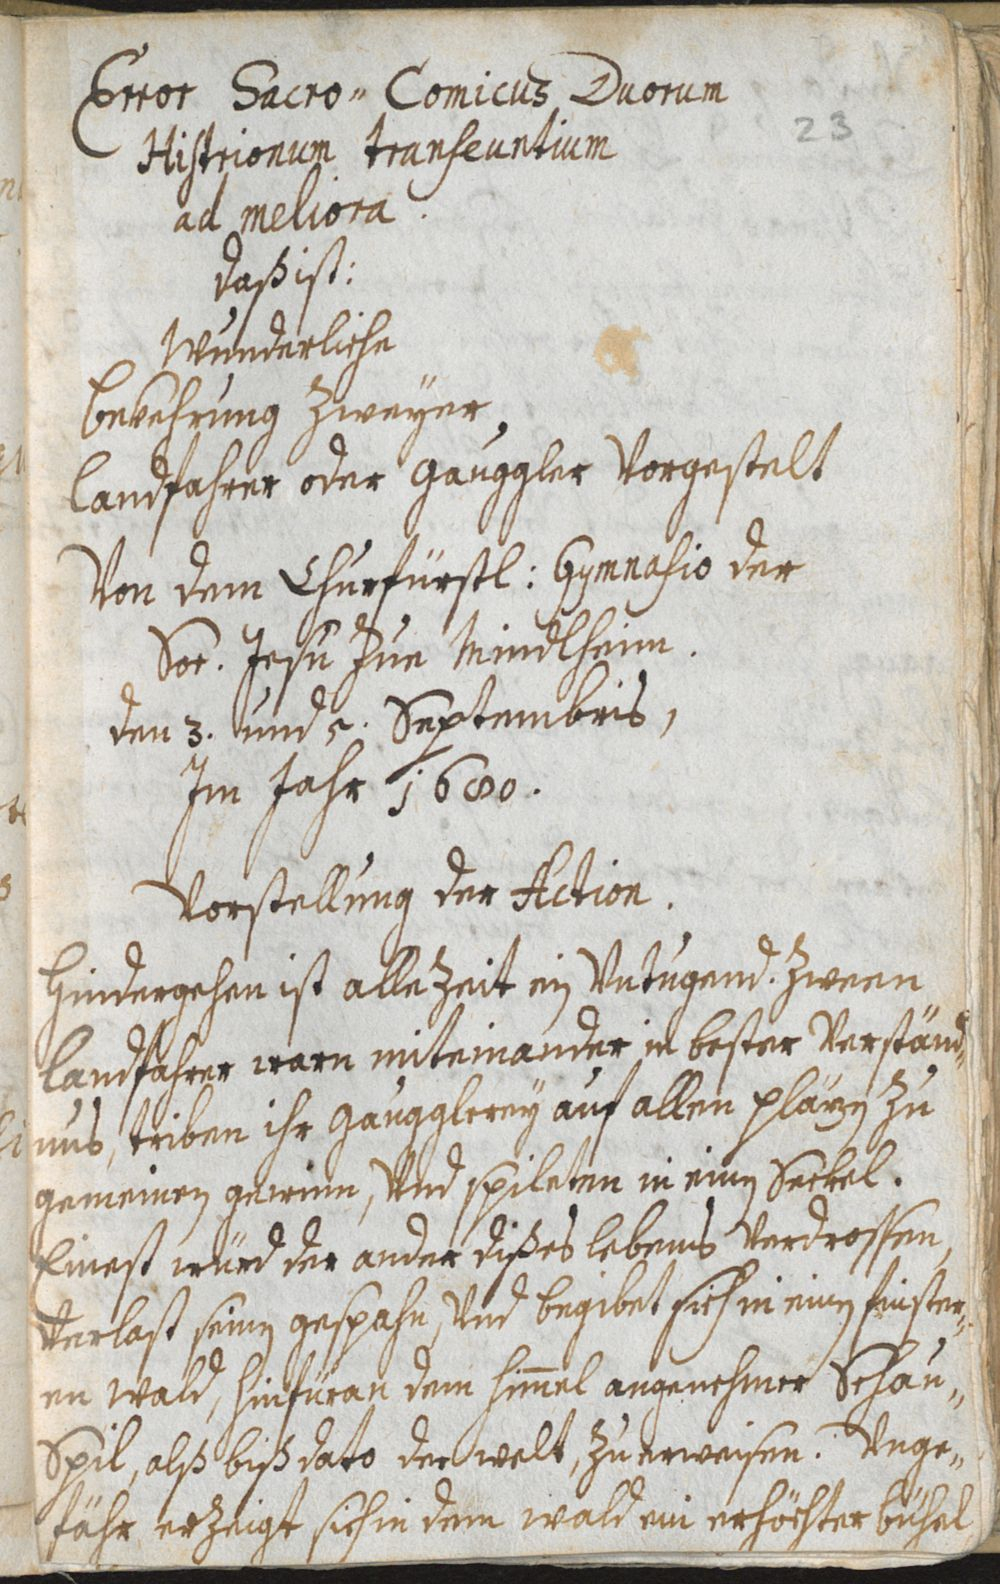 Error Sacro-Comicus Duorum
23
Histrionum transeuntium
ad meliora.
daß ist:
Wunderliche
bekehrung Zweyer
landfahrer oder gauggler Vorgestelt
Von dem Churfürstl: Gymnasio der
Soc. Jesu Zue Mindlheim.
den 3. und 5. Septembris,
Im Jahr 1680.
Vorstellung der Action.
Hindergehen ist alle Zeit ein Untugend. Zween
landfahrer warn miteinander in bester Verständ-
nus, triben ihr gaugglerey auf allen pläzen zu
gemeinen gewinn, Und spileten in einen Seckel.
Einest würd der ander dißes lebens Verdrossen,
Verlast seinen gespahn, Und begibet sich in einen finster-
en wald, hinfüran dem himmel angenehmer Schau-
Spil, alß biß dato der welt, zu erweisen. Unge-
fähr erzeigt sich in dem wald ein erhöchter bühel